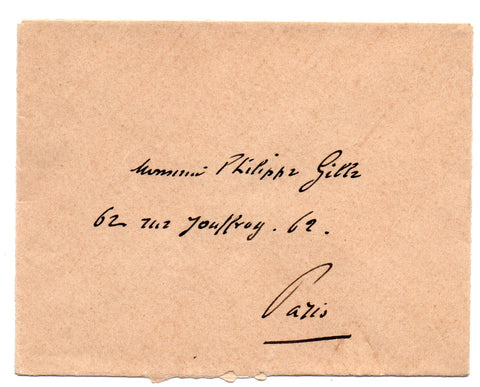 Monsieur Philippe Gille
62 rue Jouffroy. 62.
Paris